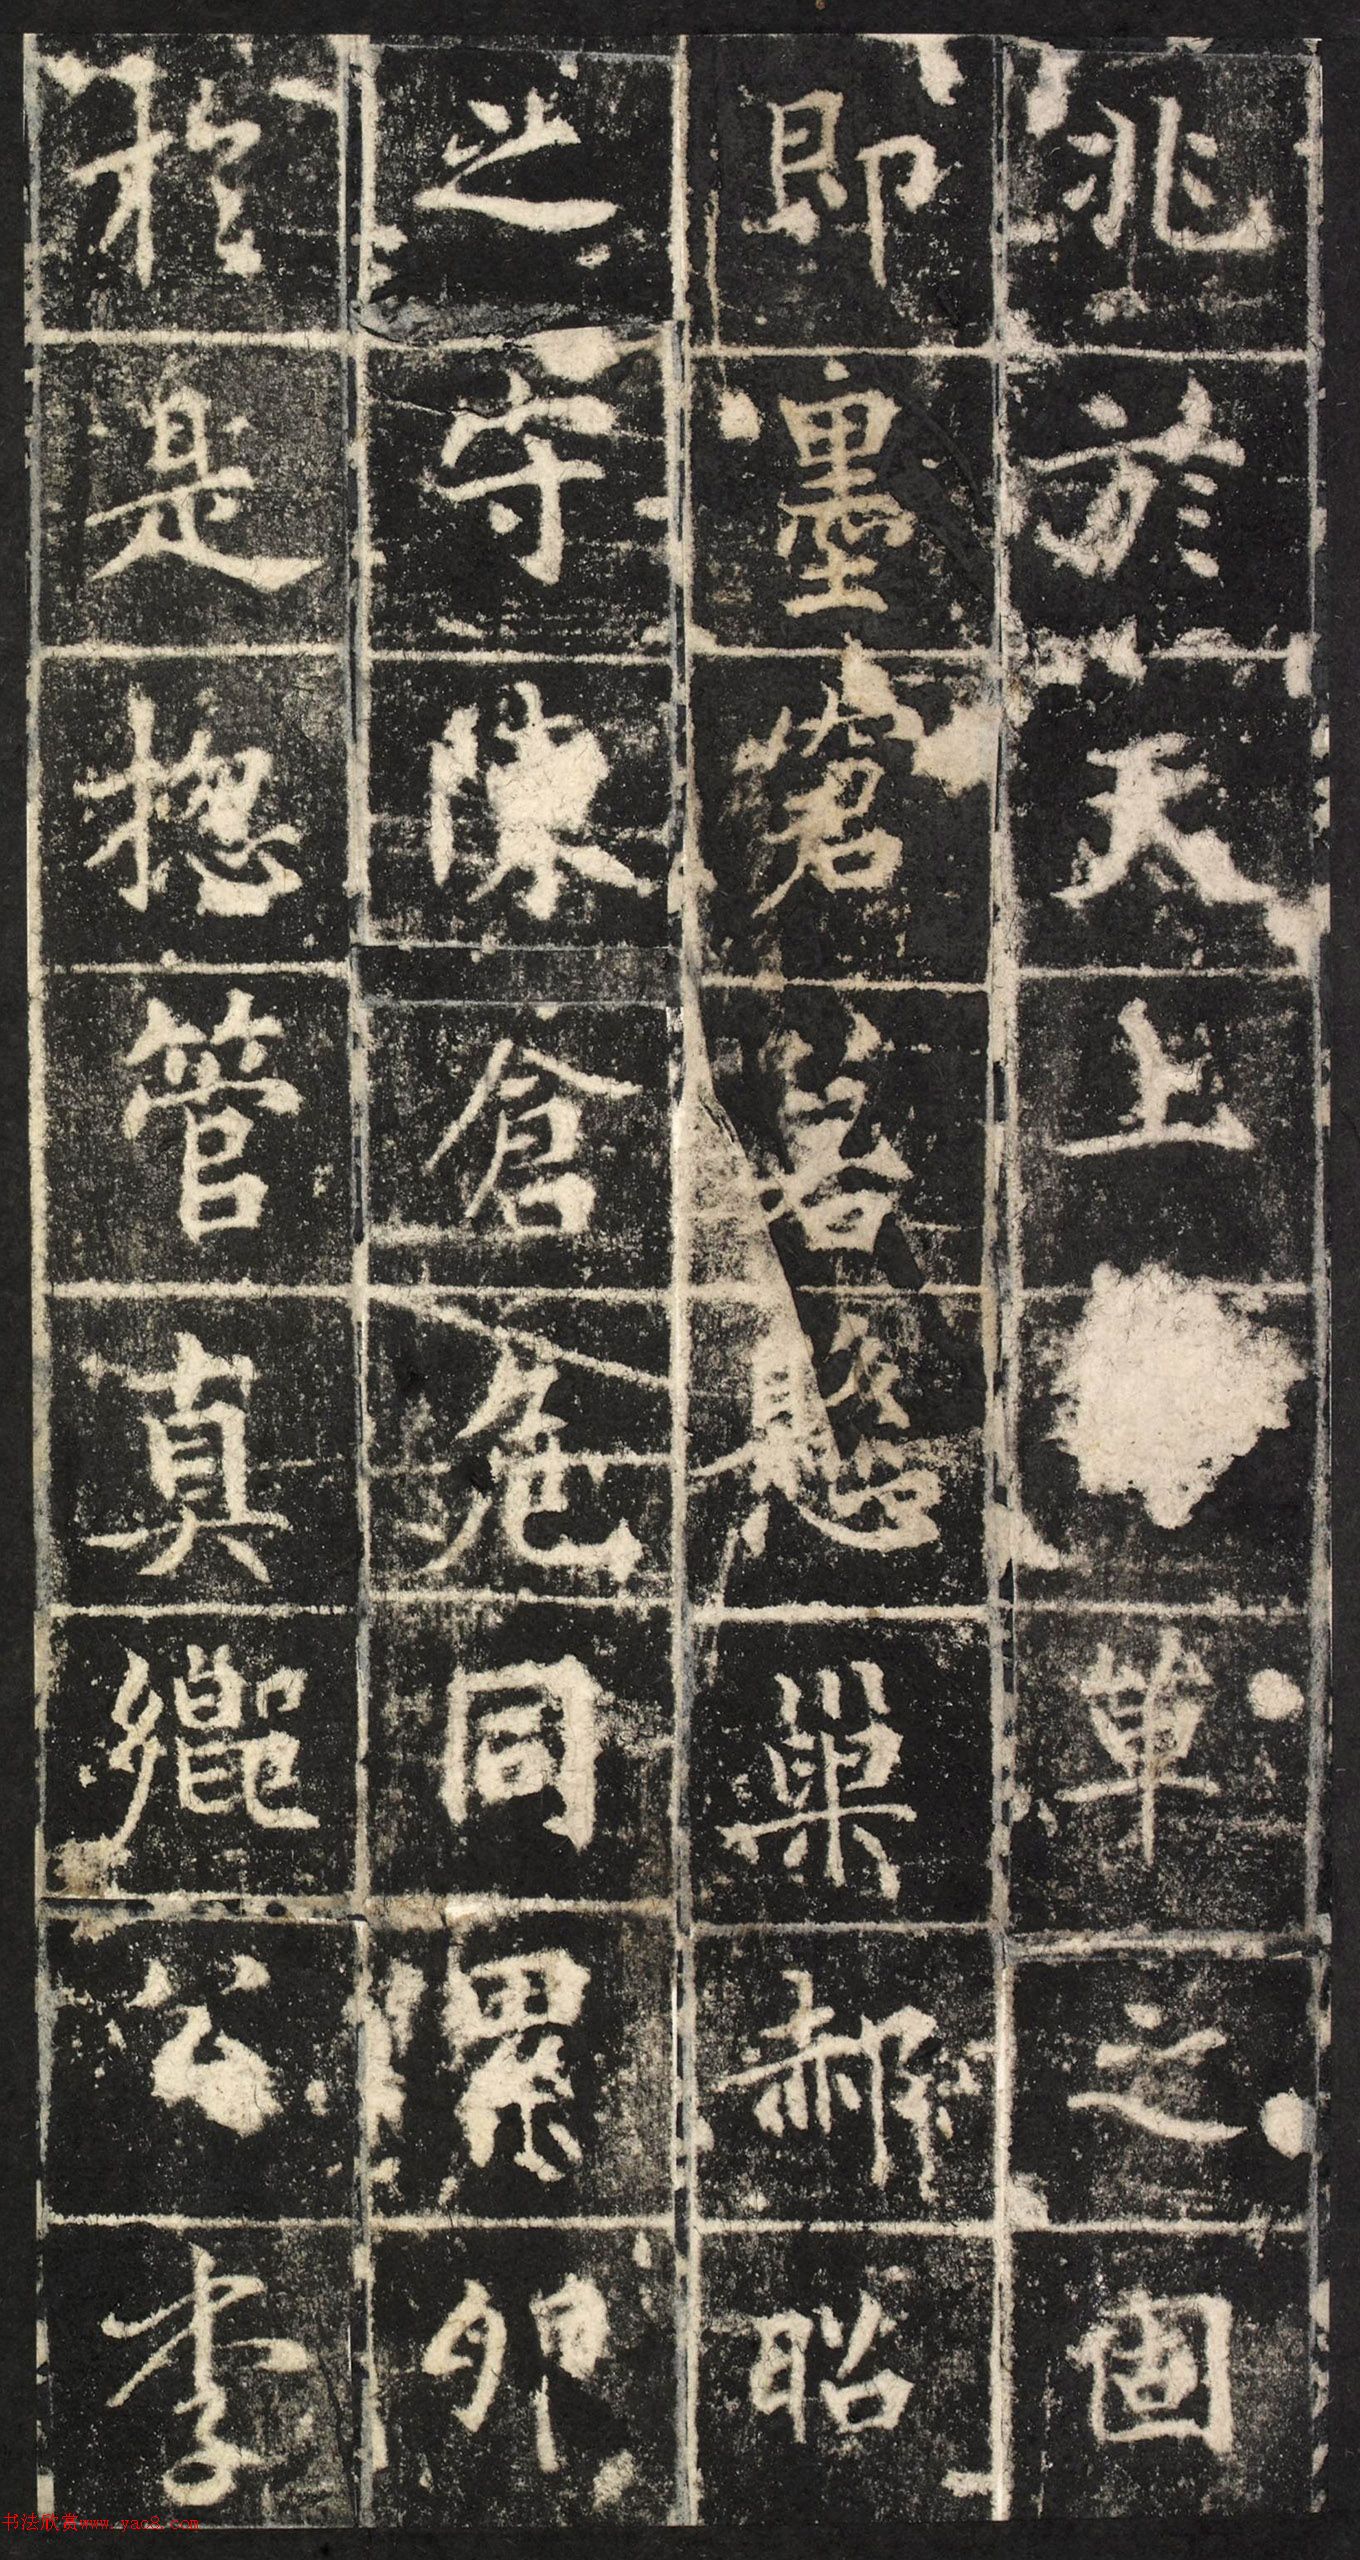 兆於天上單之固
即墨窘若懸巢郝昭
之守陳倉危同累卵
於是摠管真鄉公李
书法欣赏www.yac8.com